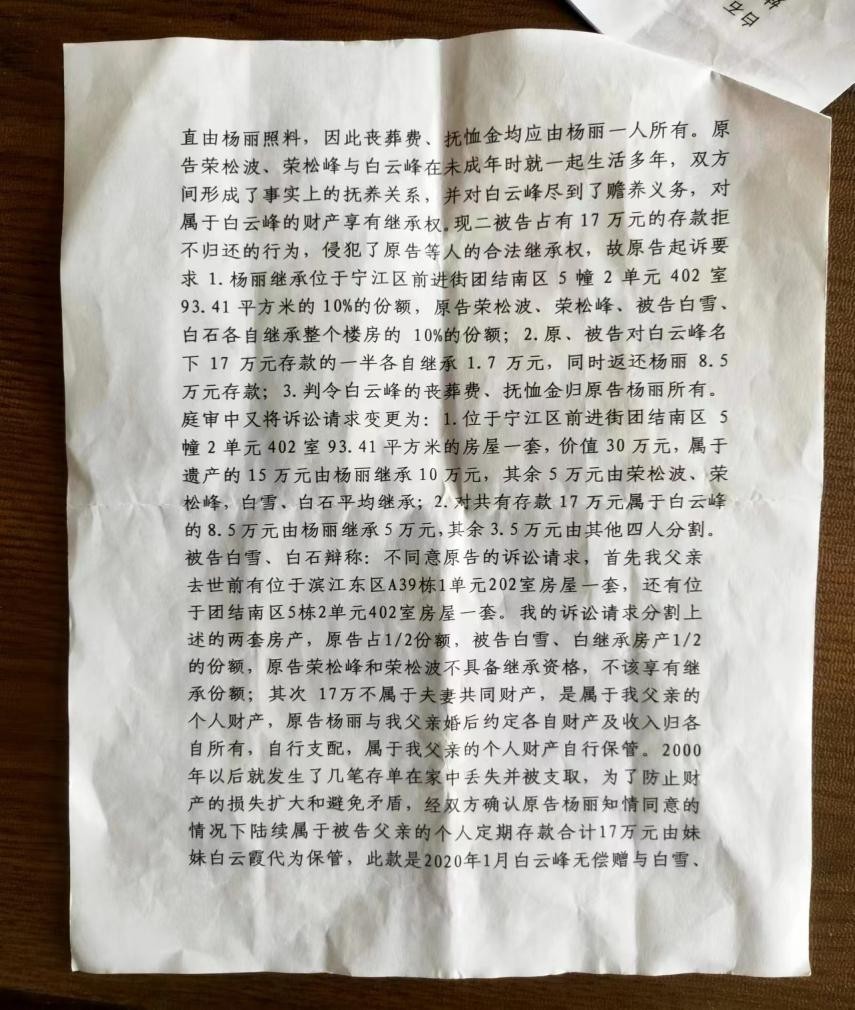 白石
直由杨丽照料，因此丧葬费、抚恤金均应由杨丽一人所有。原
告荣松波、荣松峰与白云峰在未成年时就一起生活多年，双方
间形成了事实上的抚养关系，并对白云峰尽到了赡养义务，对
属于白云峰的财产享有继承权。现二被告占有 17 万元的存款拒
不归还的行为，侵犯了原告等人的合法继承权，故原告起诉要
求 1. 杨丽继承位于宁江区前进街团结南区 5 幢 2 单元 402 室
93.41 平方米的 10%的份额，原告荣松波、荣松峰、被告白雪、
白石各自继承整个楼房的 10%的份额；2. 原、被告对白云峰名
下 17 万元存款的一半各自继承 1.7 万元，同时返还杨丽 8.5
万元存款；3. 判令白云峰的丧葬费、抚恤金归原告杨丽所有。
庭审中又将诉讼请求变更为：1. 位于宁江区前进街团结南区 5
幢 2 单元 402 室 93.41 平方米的房屋一套，价值 30 万元，属于
遗产的 15 万元由杨丽继承 10 万元，其余 5 万元由荣松波、荣
松峰，白雪、白石平均继承；2. 对共有存款 17 万元属于白云峰
的 8.5 万元由杨丽继承 5 万元，其余 3.5 万元由其他四人分割。
被告白雪、白石辩称：不同意原告的诉讼请求，首先我父亲
去世前有位于滨江东区A39栋1单元202室房屋一套，还有位
于团结南区5栋2单元402室房屋一套。我的诉讼请求分割上
述的两套房产，原告占1/2份额，被告白雪、白继承房产1/2
的份额，原告荣松峰和荣松波不具备继承资格，不该享有继
承份额；其次 17万不属于夫妻共同财产，是属于我父亲的
个人财产，原告杨丽与我父亲婚后约定各自财产及收入归各
自所有，自行支配，属于我父亲的个人财产自行保管。2000
年以后就发生了几笔存单在家中丢失并被支取，为了防止财
产的损失扩大和避免矛盾，经双方确认原告杨丽知情同意的
情况下陆续属于被告父亲的个人定期存款合计17万元由妹
妹白云霞代为保管，此款是2020年1月白云峰无偿赠与白雪、